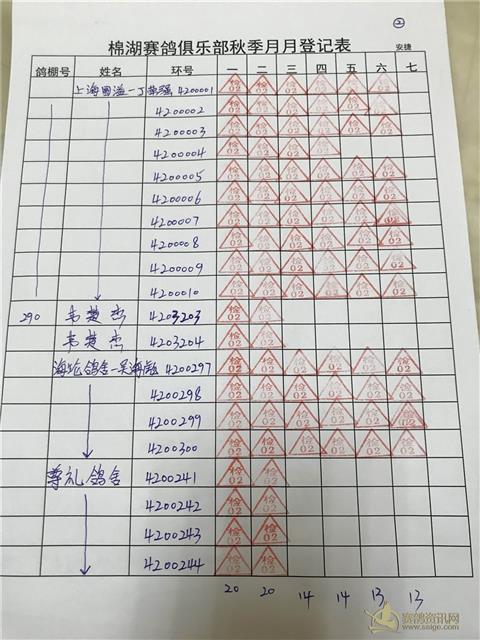 ②
棉湖赛鸽俱乐部秋季月月登记表 安捷
鸽棚号 姓名 环号 一 二 三 四 五 六 七
上海国溢一丁荣强 4200001 检02 检02 检02 检02 检02 检02
4200002 检02 检02 检02 检02 检02 检02
4200003 检02 检02 检02 检02 检02 检02
4200004 检02 检02 检02 检02
4200005 检02 检02 检02 检02 检02 检02
4200006 检02 检02 检02 检02 检02 检02
4200007 检02 检02 检02 检02 检02 检02
4200008 检02 检02 检02 检02 检02 检02
4200009 检02 检02 检02 检02 检02 检02
4200010 检02 检02 检02 检02 检02 检02
290 韦楚杰 4203203 检02 检02
韦楚杰 4203204 检02 检02
海龙鸽舍-吴海彪 4200297 检02 检02 检02 检02 检02 检02
4200298 检02 检02 检02 检02 检02 检02
4200299 检02 检02 检02 检02 检02 检02
4200300 检02 检02 检02 检02 检02 检02
尊礼鸽舍 4200241 检02 检02
4200242 检02 检02
4200243 检02 检02
4200244 检02 检02
20 20 14 14 13 13
赛鸽资讯网
www.saige.com